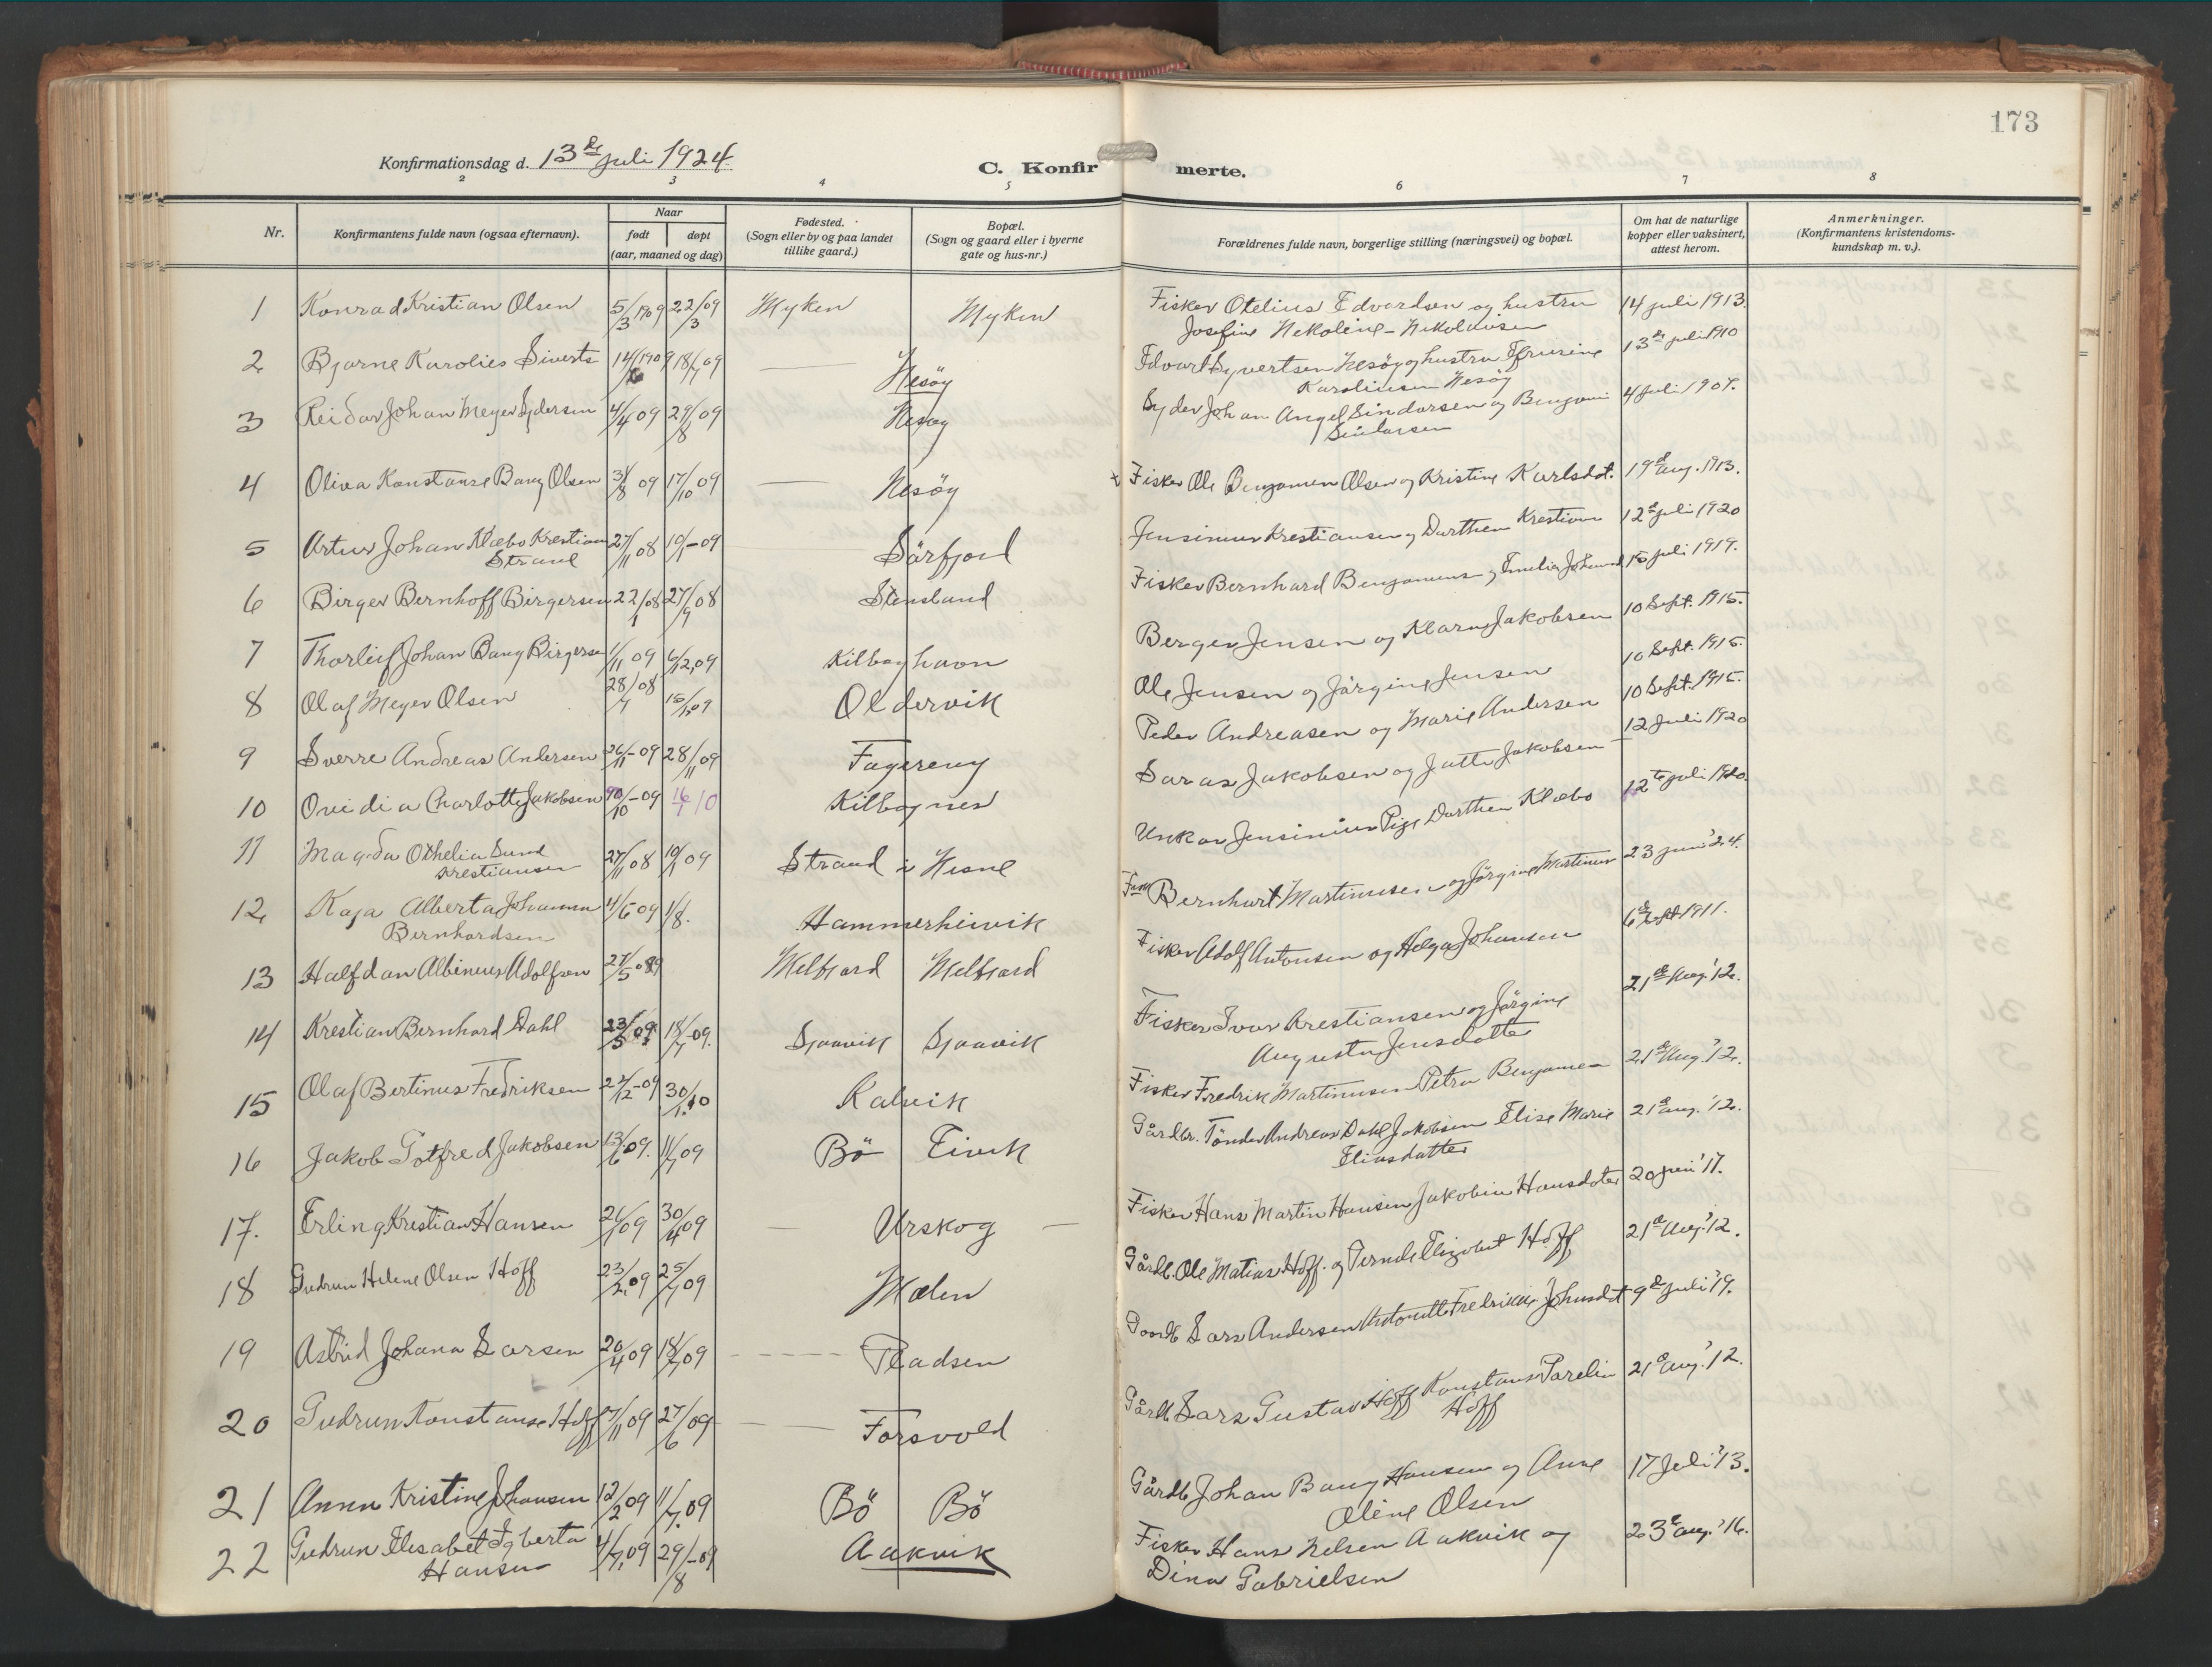 173
Konfirmationsdag d. 13de juli 1924.
C. Konfirmerte.
2 3 4 5 6 7 8
Nr.
Konfirmantens fulde navn (ogsaa efternavn).
Naar
født døpt
(aar, maaned og dag)
Fødested.
(Sogn eller by og paa landet
tillike gaard.)
Bopæl.
(Sogn og gaard eller i byerne
gate og hus-nr.)
Forældrenes fulde navn, borgerlige stilling (næringsvei) og bopæl.
Om hat de naturlige
kopper eller vaksinert,
attest herom.
Anmerkninger.
(Konfirmantens kristendoms-
kundskap m. v.).
1 Konrad Kristian Olsen 5/3 1909 22/3 09 Myken Myken Fisker Otelius Edvardsen og hustru 14 juli 1913.
Josefine Nekoline - Nikolaisen
2 Bjarne Karolies Siverts 18/7 09 Nesöy Edvard Syvertsen Nesöy og hustru Efrusine 13de juli 1910
Karoliusen Nesöy
3 Reidar Johan Meyer Sydersen 4/4 09 29/8 09 Nesöy Syder Johan Angel Sindarsen og Benjami 4 juli 1907.
4 Oliva Konstanse Bang Olsen 31/8 09 17/10 09 Nesöy Fisker Ole Benjamen Olsen og Kristine Karlsdat. 19d aug. 1913.
5 Artur Johan Klæbo Krestian 27/11 08 10/1-09 Sörfjord Jensinius Krestiansen og Dorthea Krestian 12te juli 1920
Strand
6 Birger Bernhoff Birgersen 27/9 08 Stensland Fisker Bernhard Benjamens og Emelie Johans 15 juli 1919.
7 Thorleif Johan Bang Birgerse 1/11 09 6/12 09 Kilboghavn Berger Jensen og Klara Jakobsen 10 Sept. 1915.
8 Olaf Meyer Olsen 28/7 08 15/1 09 Oldervik Ole Jensen og Jörgine Jensen 10 Sept. 1915.
9 Sverre Andreas Andersen 26/11-09 28/11 09 Fagereng Peder Andreasen og Marie Andersen 10 Sept. 1915.
10 Ovidia Charlotte Jakobsen -09 16/1 10 Kilbognes Saras Jakobsen og Jutte Jakobsen 12 Juli 1920
11 Magda Othelia Sund 27/11 08 10/1 09 Strand i Nesne Unkar Jensinius Pige Dorthea Klæbo 12te juli 1920.
Krestiansen
12 Kaja Alberta Johanna 4/6 09 1/8. Hammerheivik Bernhart Martinusen og Jörgine Martinus 23 juni '24.
Bernhardsen
13 Halfdan Albineus Adolfsen 27/5 Melfjord Melfjord Fisker Adolf Antonsen og Helga Johansen 6d Sept 1911.
14 Krestian Bernhard Dahl 23/5 09 18/7-09. Sjaavik Sjaavik Fisker Ivar Krestiansen og Jörgine 21de Aug. '12.
Augusta Jensdatte
15 Olaf Bertinus Fredriksen 22/12-09 30/1 10 Kalvik Fisker Fredrik Martinusen Petra Benjamen 21de Aug. '12.
16 Jakob Gotfred Jakobsen 13/6 09. 11/7 09 Bö Eivik Gårdbr. Tönder Andreas Dahl Jakobsen Elise Marie 21d aug. '12.
Eliasdatter
17. Erling Krestian Hansen 30/4 09 Urskog Fisker Hans Martin Hansen Jakobine Hansdater 20 juni '17.
18 Gudrun Helene Olsen Hoff 23/2 09 25/7 09 Mælen Gårdb. Ole Matias Hoff. og Pernele Elizabet Hoff 21d Aug. '12.
19 Astrid Johana Larsen 20/4 09 18/7 09 Pladsen Lars Andersen Antonette Fredrikke Johnsdat 9de juli '19.
20 Gudrun Konstanse Hoff 27/6 09 Forsvold Gårdb Lars Gustav Hoff Konstanse Parelin 21d aug. '12.
Hoff
21 Anna Kristine Johansen 12/2 09 11/7. 09 Bö Bö Gårdb Johan Bang Hansen og Anne 17 Juli '13.
Oline Olsen
22 Gudrun Elesabet Egberta 4/7, 09 29/8-09 Aakvik Fisker Hans Nelsen Aakvik og 23d aug. '16.
Hansen Dina Gabrielsen